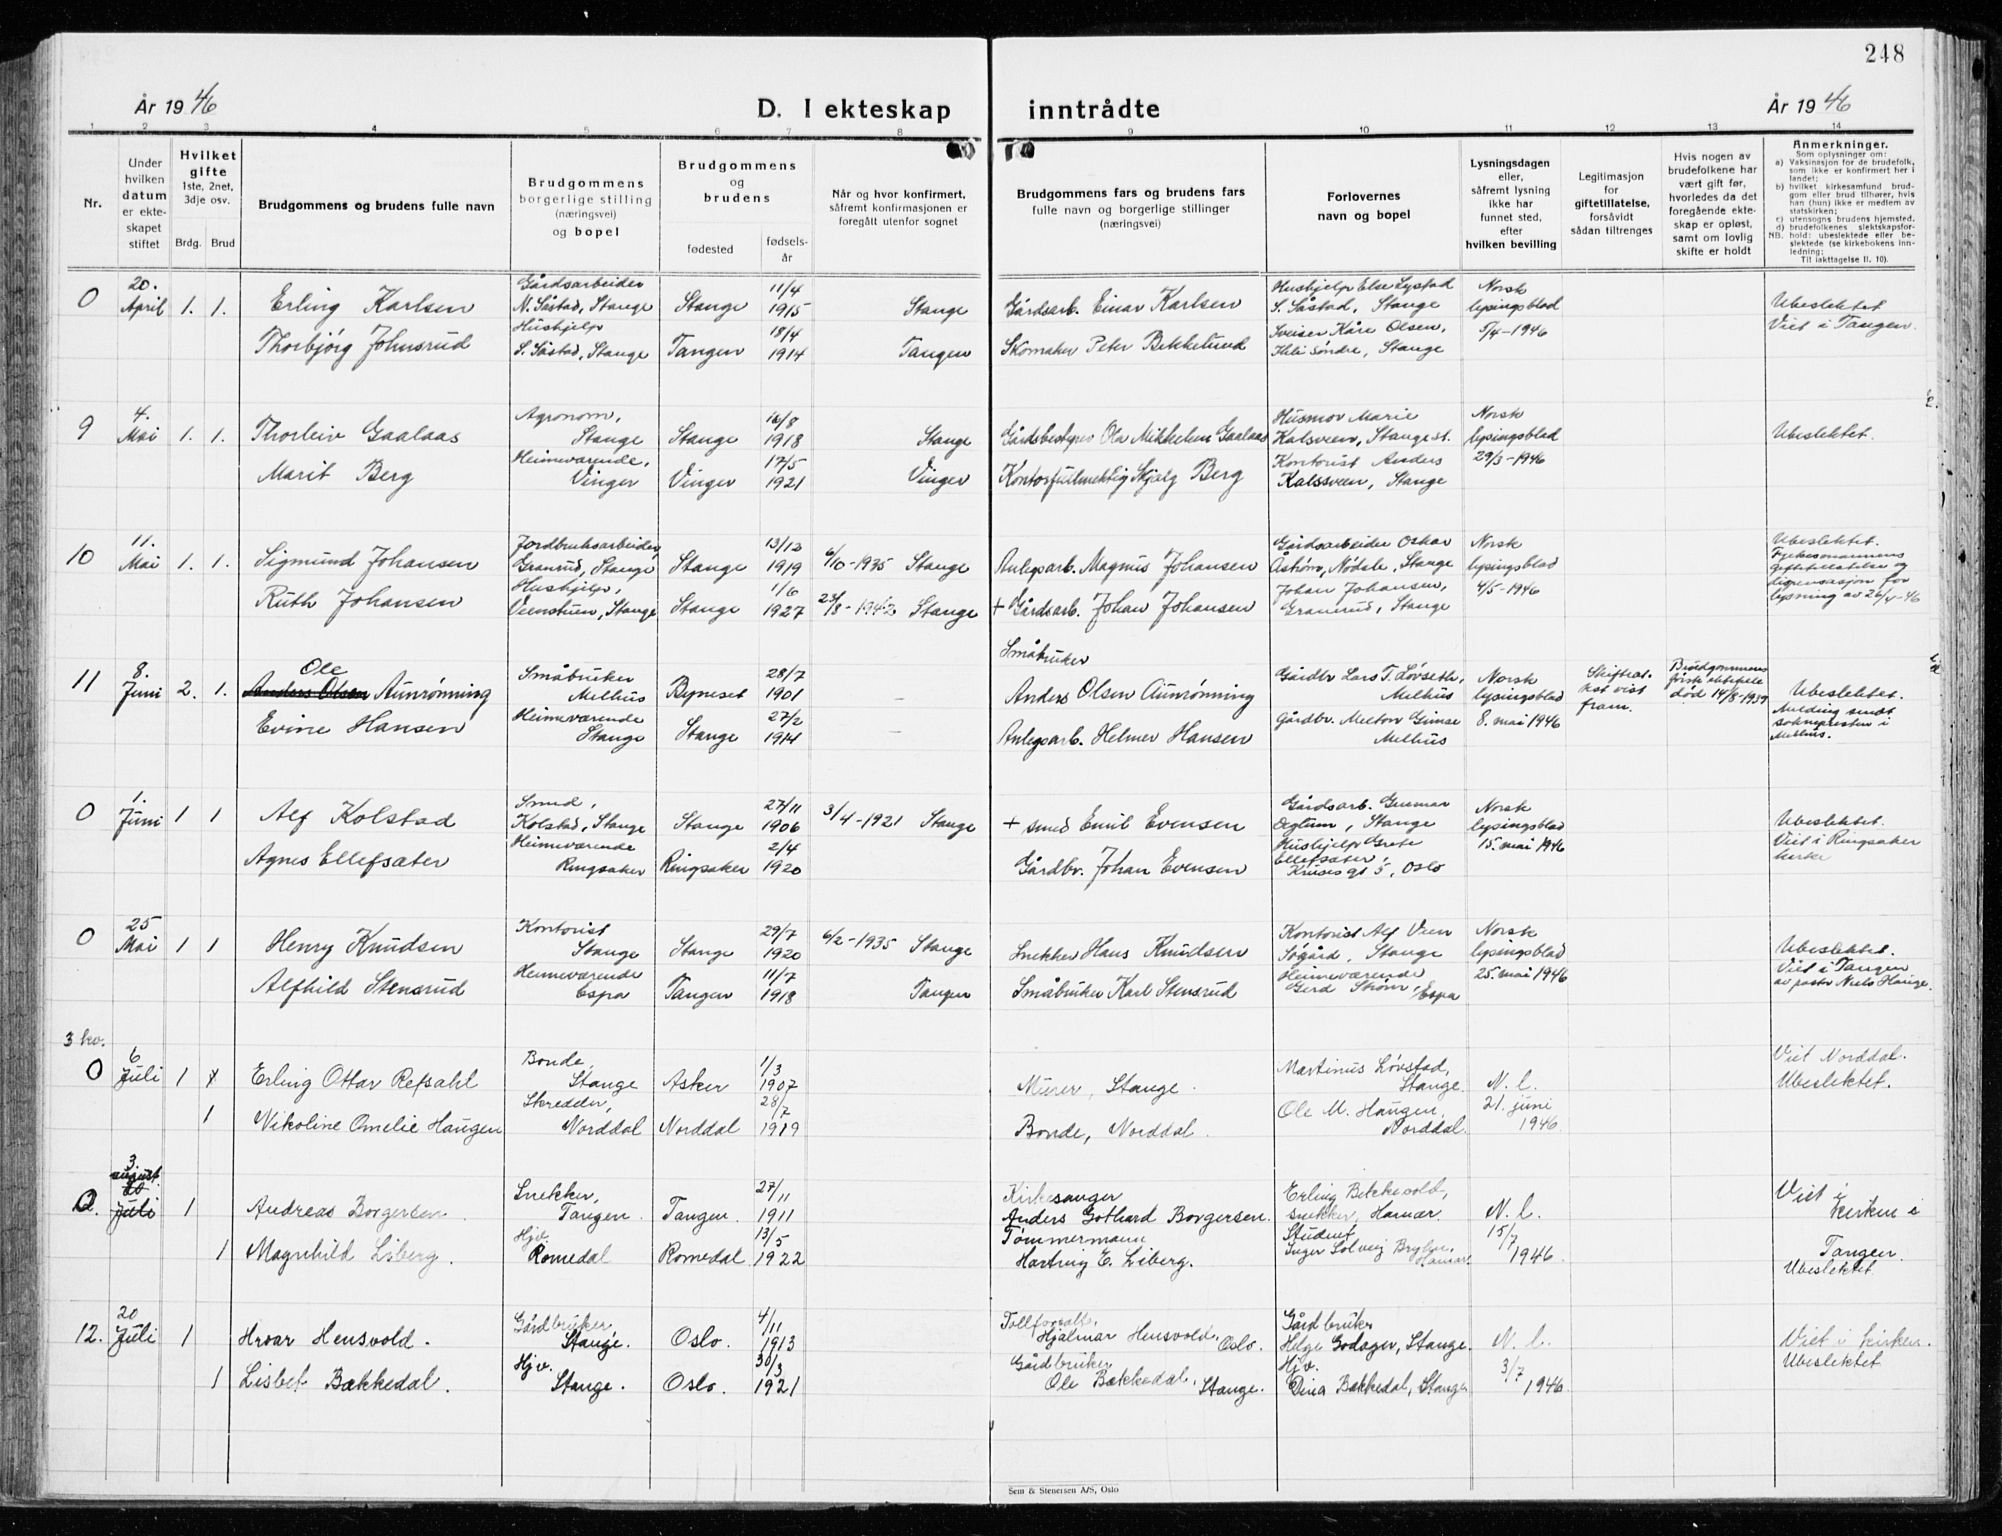 248
År 1946
D. I ekteskap inntrådte
År 1946
1 2 3 4 5 6 7 8 9 10 11 12 13 14
Nr.
Under hvilken datum er ekteskapet stiftet
Hvilket gifte 1ste, 2net, 3dje osv.
Brdg. Brud
Brudgommens og brudens fulle navn
Brudgommens borgerlige stilling (næringsvei) og bopel
Brudgommens og brudens
fødested
fødselsår
Når og hvor konfirmert, såfremt konfirmasjonen er foregått utenfor sognet
Brudgommens fars og brudens fars fulle navn og borgerlige stillinger (næringsvei)
Forlovernes navn og bopel
Lysningsdagen eller, såfremt lysning ikke har funnet sted, efter hvilken bevilling
Legitimasjon for giftetillatelse, forsåvidt sådan tiltrenges
Hvis nogen av brudefolkene har vært gift før, hvorledes da det foregående ekteskap er opløst, samt om lovlig skifte er holdt
Anmerkninger.
Som oplysninger om:
a) Vaksinasjon for de brudefolk, som ikke er konfirmert her i landet;
b) hvilket kirkesamfund brudgom eller brud tilhører, hvis han (hun) ikke er medlem av statskirken;
c) utensogns brudens hjemsted.
d) brudefolkenes slektskapsforhold: ubeslektede eller beslektede (se kirkebokens innledning;
NB.
Til iakttagelse II. 10).
0 20. April 1. 1. Erling Karlsen Gårdsarbeider N. Såstad, Stange Stange 11/4 1915 Stange Gårdsarb. Einar Karlsen Hushjelp Else Lystad S. Såstad, Stange Norsk lysingsblad 5/4-1946 Ubeslektet Viet i Tangen.
Thorbjörg Johnsrud Hushjelp S. Såstad, Stange Tangen 18/4 1914 Tangen Skomaker Peter Bekkelund Sveiser Kåre Olsen, søndre, Stange
9 4. Mai 1. 1. Thorleiv Gaalaas Agronom, Stange Stange 1918 Stange Gårdsbestyrer Ola Mikkelsen Gaalaas Husmor Marie Kalsveen, Stange st. Norsk lysingsblad 29/3-1946 Ubeslektet.
Marit Berg Heimeværende, Vinger Vinger 17/5 1921 Vinger Kontorfullmektig Skjalg Berg Kontorist Anders Kalssveen, Stange
10 11. Mai 1. 1. Sigmund Johansen Jordbruksarbeider Granrud, Stange Stange 13/12 1919 6/10-1935 Stange Anlegsarb. Magnus Johansen Gårdsarbeider Oskar Åström, Nødste, Stange Norsk lysingsblad 4/5-1946 Ubeslektet. Fylkesmannens giftetillatelse og dispensasjon for lysning av 26/4-46
Ruth Johansen Hushjelp, Veenstuen, Stange Stange 1/6 1927 23/8-1942 Stange + Gårdsarb. Johan Johansen Johan Johansen, Granerud, Stange
11 8. Juni 2. 1. Ole Anders Olsen Aunrønning Småbruker Melhus Byneset 28/7 1901 — Småbruker Anders Olsen Aunrønning Gårdbr Lars T. Løvseth, Melhus Norsk lysingsblad 8. mai 1946 Skifteattest vist fram. Brudgommens første ektefelle død 14/8-1939 Ubeslektet. Melding sendt soknepresten i Melhus.
Evine Hansen Heimeværende Stange Stange 27/2 1914 Anlegsarb. Helmer Hansen Gårdbr. Melton Gimse Melhus
0 1. Juni 1 1 Alf Kolstad Smed, Kolstad, Stange Stange 27/11 1906 3/4-1921 Stange + smed Emil Evensen Gårdsarb. Gunnar Deglum, Stange Norsk lysingsblad 15. mai 1946 Ubeslektet. Viet i Ringsaker kirke
Agnes Ellefsæter Heimeværende Ringsaker Ringsaker 2/4 1920 Gårdbr. Johan Evensen Hushjelp Grete Ellefsæter, Kruses gt 5, Oslo
0 25 Mai 1 1 Henry Knudsen Kontorist Stange Stange 29/7 1920 6/2-1935 Stange Snekker Hans Knudsen Kontorist Alf Veen Søgård, Stange Norsk lysingsblad 25. mai 1946 Ubeslektet. Viet i Tangen av pastor Niels Hauge.
Alfhild Stensrud Heimeværende Espa Tangen 11/7 1918 Tangen Småbruker Karl Stensrud Heimeværende Gerd Strøm, Espa
3 kv.
0 6 Juli 1 Erling Ottar Refsahl Bonde, Stange Asker 1/3 1907 Murer, Stange. Martinus Løvstad, Stange. N. l. 21. juni 1946. Viet Norddal. Ubeslektet.
1 Nikoline Omelie Haugen Skredder, Norddal Norddal 28/7 1919 Bonde, Norddal. Ole M. Haugen, Norddal.
0. 3 august 20 Juli 1 Andreas Borgersen. Snekker, Tangen. Tangen. 27/11 1911 Kirkesanger Anders Gothard Borgersen. Erling Bekkevold, snekker, Hamar. N. l. 15/7 1946. Viet i kirken i Tangen. Ubeslektet
1 Magnhild Liberg. Hjv. Romedal Romedal 13/5 1922 Tømmermann Hartvig E. Liberg. Student Inger Solveig Hamar.
12. 20 Juli 1 Hroar Hensvold. Gårdbruker, Stange. Oslo. 4/11 1913 Tollforvalter, Hjalmar Hensvold, Oslo. Gårdbruker Helge Godager, Stange. N. l. 3/7 1946. Viet i kirken. Ubeslektet
1 Lisbet Bækkedal. Hjv. Stange. Oslo. 30/3 1921 Gårdbruker Ole Bækkedal, Stange. Hjv. Dina Bækkedal, Stange
Sem & Stenersen A/S, Oslo